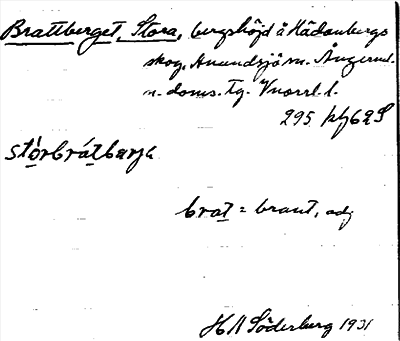 Brattberget, Stora, bergshöjd å Hädanbergs
skog, Anundsjö sn. Ångerml.
n. doms. tg. Vnorrl. l.
295 kbl 62 S
stórbrátbærjə
brat = brant, adj
H N Söderberg 1931